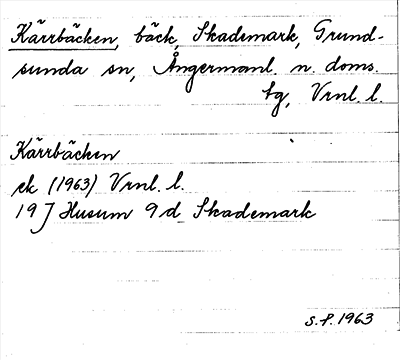 Kärrbäcken, bäck, Skademark, Grund-
sunda sn, Ångermanl. n. doms.
tg, Vrnl. l.
Kärrbäcken
ek (1963) Vrnl. l.
19 J Husum 9 d Skademark
S.F. 1963